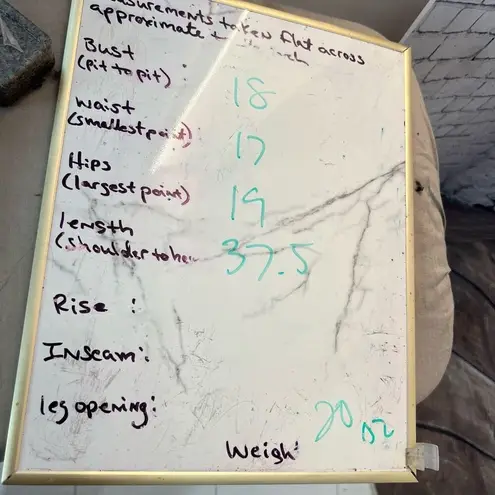 measurements taken flat across
approximate
Bust :
(pit to pit) 18
waist
(smallest point) 17
Hips
(largest point) 19
length
(shoulder to hem 37.5
Rise :
Inseam:
leg opening:
20 oz
Weigh: